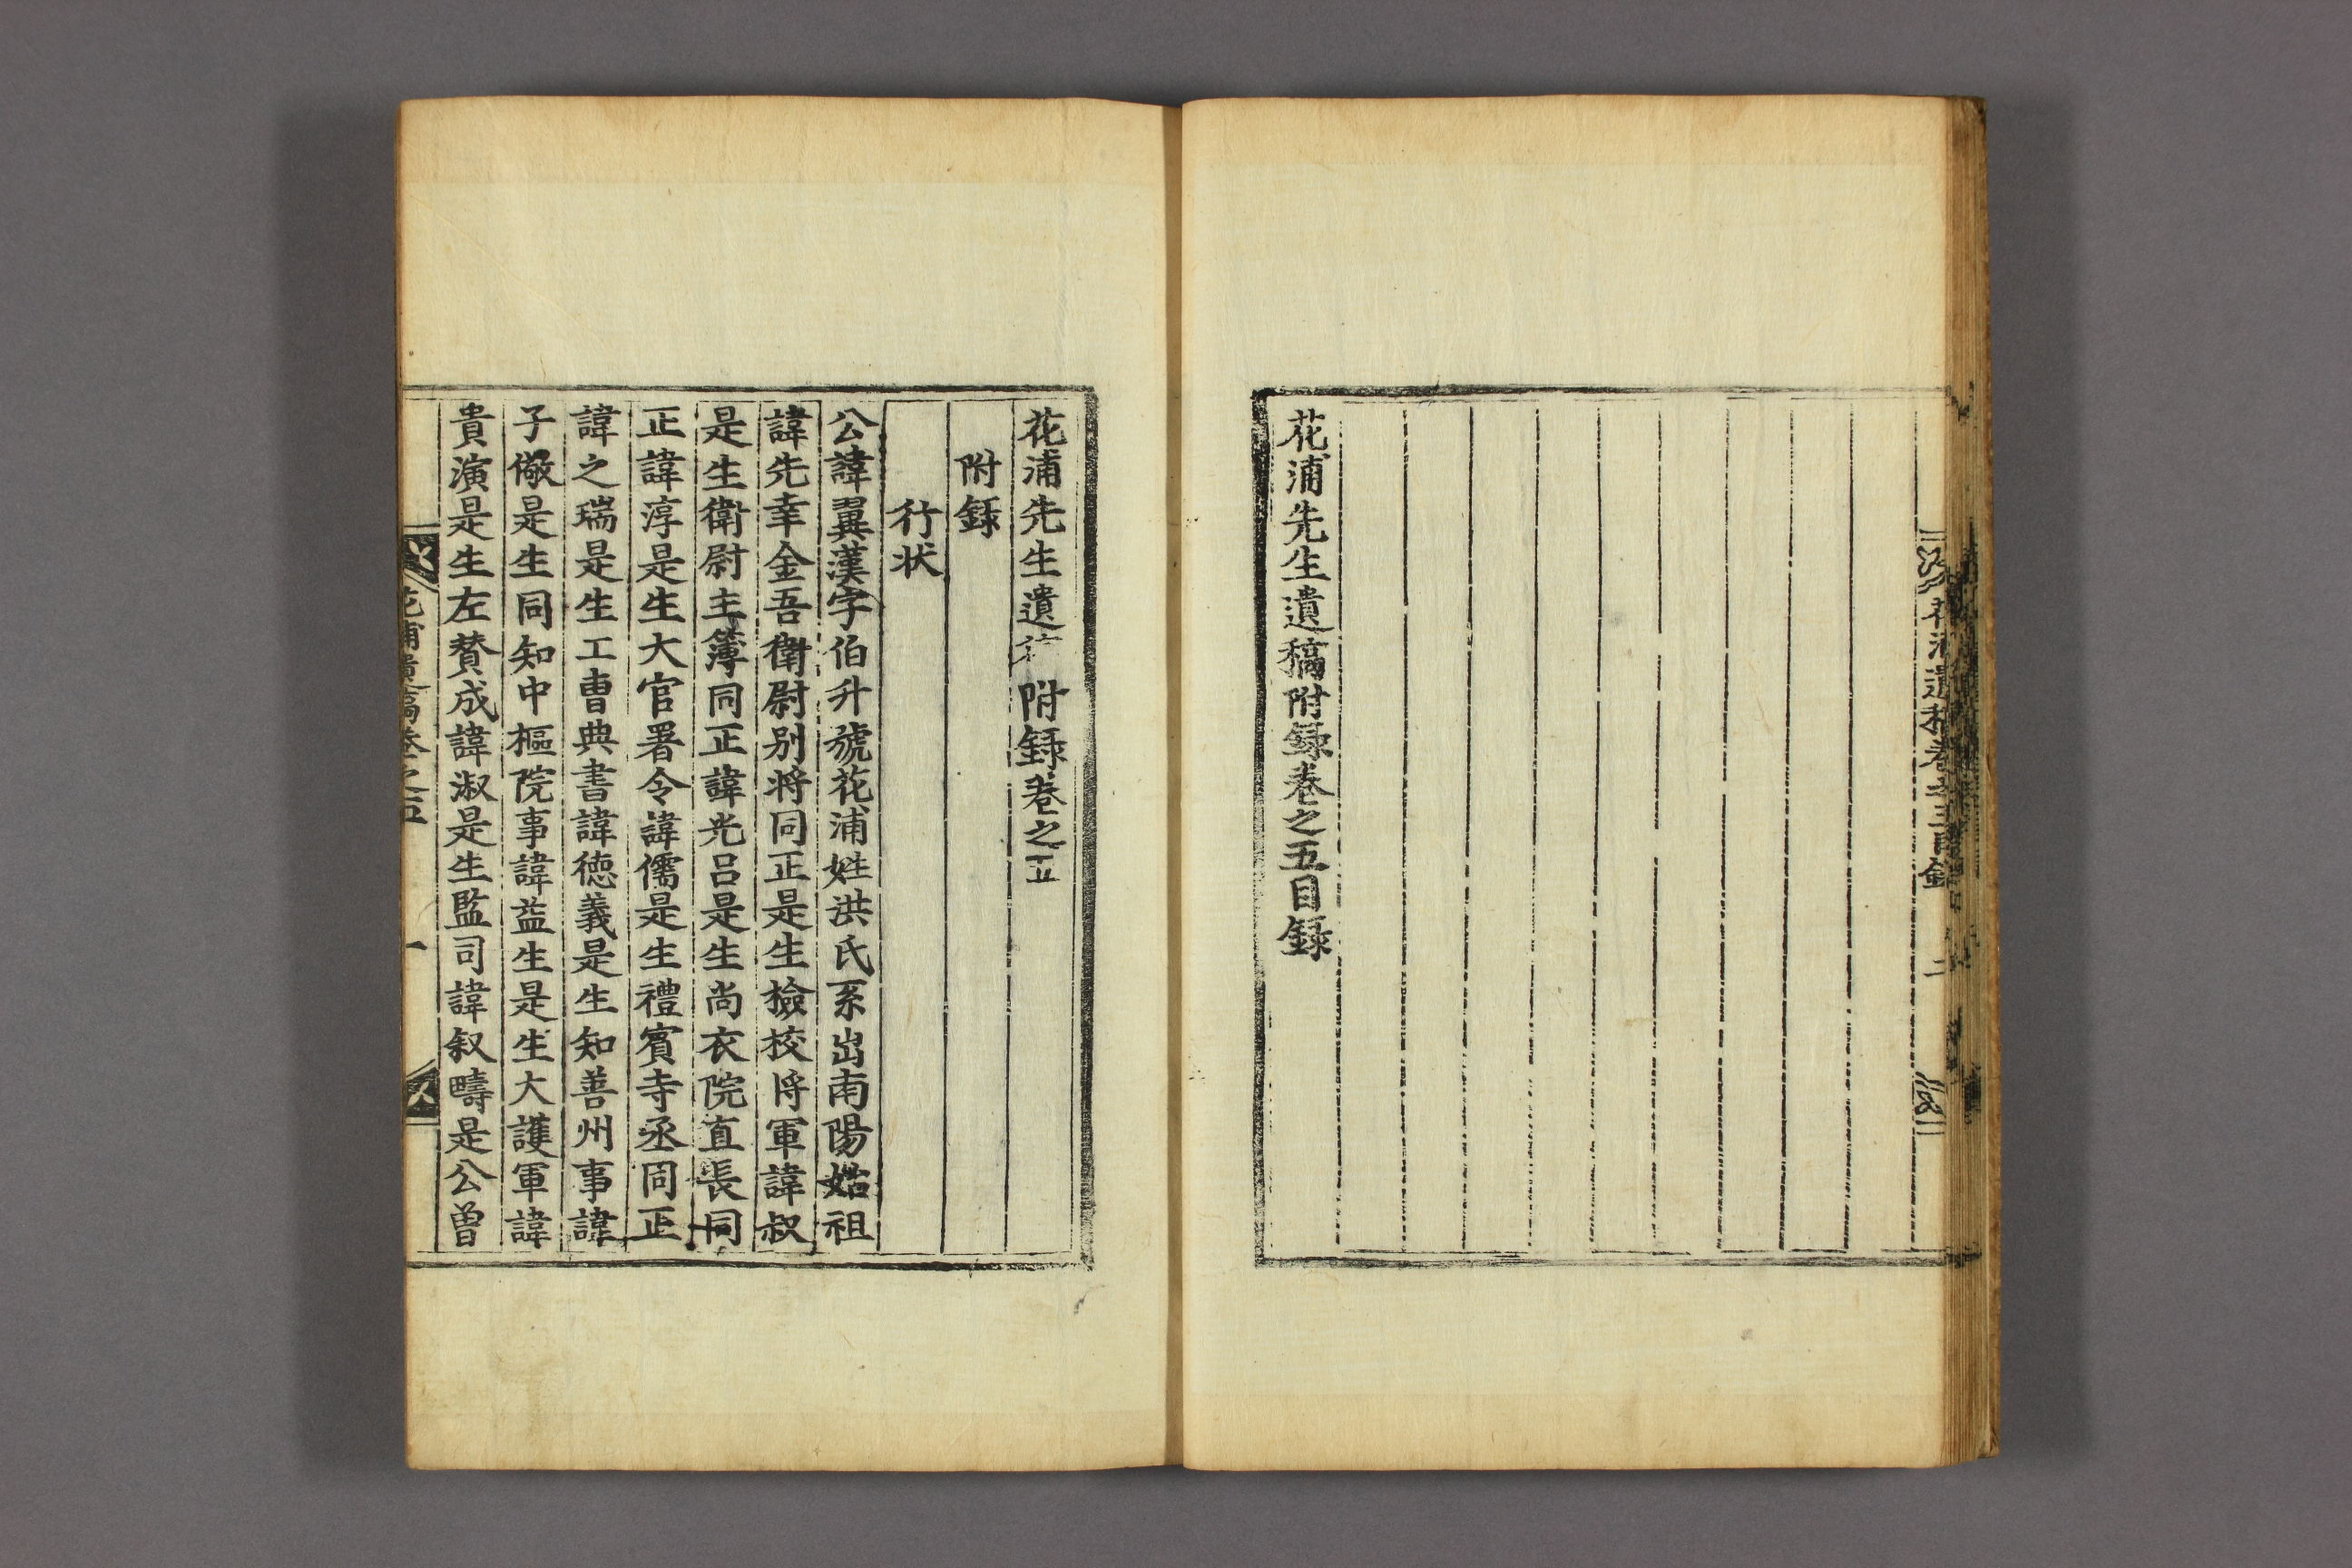 花浦遺稿卷之五目錄 二
花浦先生遺稿附録卷之五目録
花浦先生遺稿附録卷之五
附録
行状
公諱翼漢字伯升號花浦姓洪氏系出南陽始祖
諱先幸金吾衛尉别將同正是生撿校將軍諱叔
是生衛尉主簿同正諱光呂是生尚衣院直長同
正諱淳是生大官署令諱儒是生禮賓寺丞同正
諱之瑞是生工曹典書諱德義是生知善州事諱
子儆是生同知中樞院事諱益生是生大護軍諱
貴演是生左賛成諱淑是生監司諱叙疇是公曾
花浦遺稿卷之五 一